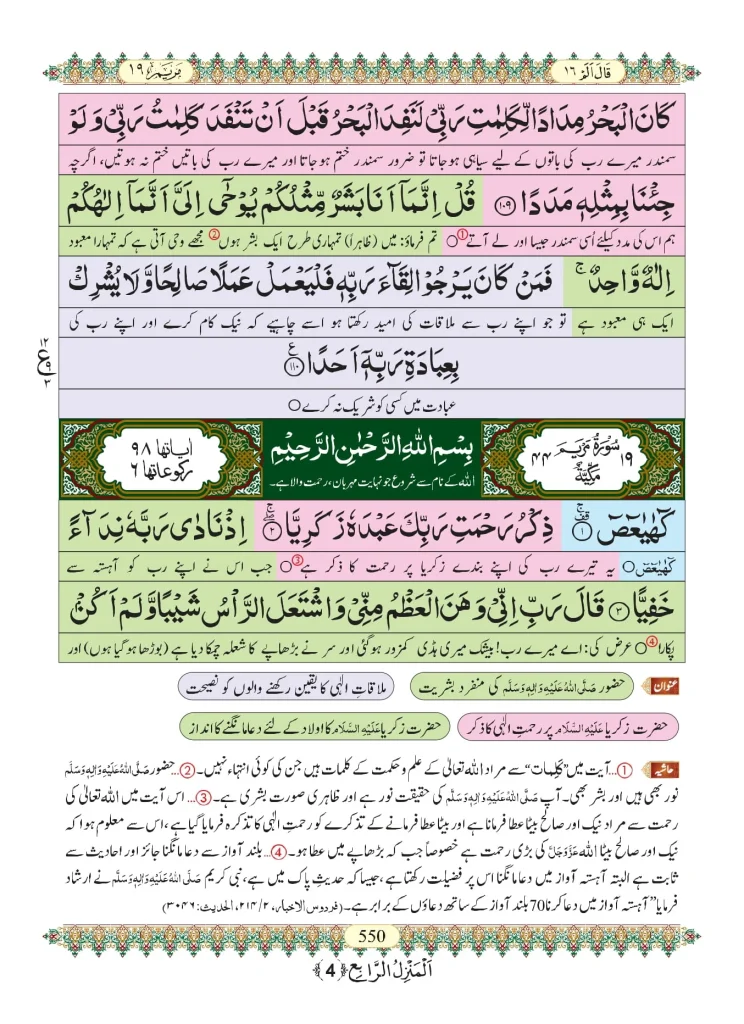 قَالَ اَلَمْ ١٦
مَرْيَم ١٩
كَانَ الْبَحْرُ مِدَادًا لِّكَلِمٰتِ رَبِّیْ لَنَفِدَ الْبَحْرُ قَبْلَ اَنْ تَنْفَدَ كَلِمٰتُ رَبِّیْ وَ لَوْ
سمندر میرے رب کی باتوں کے لیے سیاہی ہوجاتا تو ضرور سمندر ختم ہوجاتا اور میرے رب کی باتیں ختم نہ ہوتیں، اگرچہ
جِئْنَا بِمِثْلِهٖ مَدَدًا ﴿۱۰۹﴾ قُلْ اِنَّمَاۤ اَنَا بَشَرٌ مِّثْلُكُمْ یُوْحٰۤى اِلَیَّ اَنَّمَاۤ اِلٰهُكُمْ
ہم اس کی مدد کیلئے اُسی سمندر جیسا اور لے آتے① ○ تم فرماؤ: میں (ظاہراً) تمہاری طرح ایک بشر ہوں② مجھے وحی آتی ہے کہ تمہارا معبود
اِلٰهٌ وَّاحِدٌ ۚ فَمَنْ كَانَ یَرْجُوْا لِقَآءَ رَبِّهٖ فَلْیَعْمَلْ عَمَلًا صَالِحًا وَّ لَا یُشْرِكْ
ایک ہی معبود ہے تو جو اپنے رب سے ملاقات کی امید رکھتا ہو اسے چاہیے کہ نیک کام کرے اور اپنے رب کی
بِعِبَادَةِ رَبِّهٖۤ اَحَدًا ﴿۱۱۰﴾ ع
عبادت میں کسی کو شریک نہ کرے ○
١٢
ع
٩
٣
١٩ سُوْرَةُ مَرْيَمَ ٤٤
مَكِّيَّةٌ
بِسْمِ اللهِ الرَّحْمٰنِ الرَّحِیْمِ
اللہ کے نام سے شروع جو نہایت مہربان، رحمت والا ہے۔
اٰیاتها ٩٨
رکوعاتها ٦
كٓهٰیٰعٓصٓ ﴿۱﴾ ذِكْرُ رَحْمَتِ رَبِّكَ عَبْدَهٗ زَكَرِیَّا ﴿۲﴾ اِذْ نَادٰى رَبَّهٗ نِدَآءً
كٓهٰیٰعٓصٓ ○ یہ تیرے رب کی اپنے بندے زکریا پر رحمت کا ذکر ہے③ ○ جب اس نے اپنے رب کو آہستہ سے
خَفِیًّا ﴿۳﴾ قَالَ رَبِّ اِنِّیْ وَهَنَ الْعَظْمُ مِنِّیْ وَ اشْتَعَلَ الرَّاْسُ شَیْبًا وَّ لَمْ اَكُنْۢ
پکارا④ ○ عرض کی: اے میرے رب! بیشک میری ہڈی کمزور ہوگئی اور سر نے بڑھاپے کا شعلہ چمکا دیا ہے (بوڑھا ہوگیا ہوں) اور
عنوان حضور صَلَّى اللهُ عَلَيْهِ وَاٰلِهٖ وَسَلَّم کی منفرد بشریت ملاقاتِ الٰہی کا یقین رکھنے والوں کو نصیحت
حضرت زکریا عَلَيْهِ السَّلَام پر رحمتِ الٰہی کا ذکر حضرت زکریا عَلَيْهِ السَّلَام کا اولاد کے لئے دعا مانگنے کا انداز
حاشیہ ①... آیت میں ”کَلِمات“ سے مراد اللہ تعالیٰ کے علم و حکمت کے کلمات ہیں جن کی کوئی انتہاء نہیں۔ ②... حضور صَلَّى اللهُ عَلَيْهِ وَاٰلِهٖ وَسَلَّم
نور بھی ہیں اور بشر بھی۔ آپ صَلَّى اللهُ عَلَيْهِ وَاٰلِهٖ وَسَلَّم کی حقیقت نور ہے اور ظاہری صورت بشری ہے۔ ③... اس آیت میں اللہ تعالیٰ کی
رحمت سے مراد نیک اور صالح بیٹا عطا فرمانا ہے اور بیٹا عطا فرمانے کے تذکرے کو رحمتِ الٰہی کا تذکرہ فرمایا گیا ہے، اس سے معلوم ہوا کہ
نیک اور صالح بیٹا اللہ عَزَّوَجَلَّ کی بڑی رحمت ہے خصوصاً جب کہ بڑھاپے میں عطا ہو۔ ④... بلند آواز سے دعا مانگنا جائز اور احادیث سے
ثابت ہے البتہ آہستہ آواز میں دعا مانگنا اس پر فضیلت رکھتا ہے، جیسا کہ حدیثِ پاک میں ہے، نبی کریم صَلَّى اللهُ عَلَيْهِ وَاٰلِهٖ وَسَلَّم نے ارشاد
فرمایا ”آہستہ آواز میں دعا کرنا 70 بلند آواز کے ساتھ دعاؤں کے برابر ہے۔ (فردوس الاخبار، ۲/۲۱۴، الحدیث: ۳۰۴۶)
550
اَلْمَنْزِلُ الرَّابِع ﴿4﴾